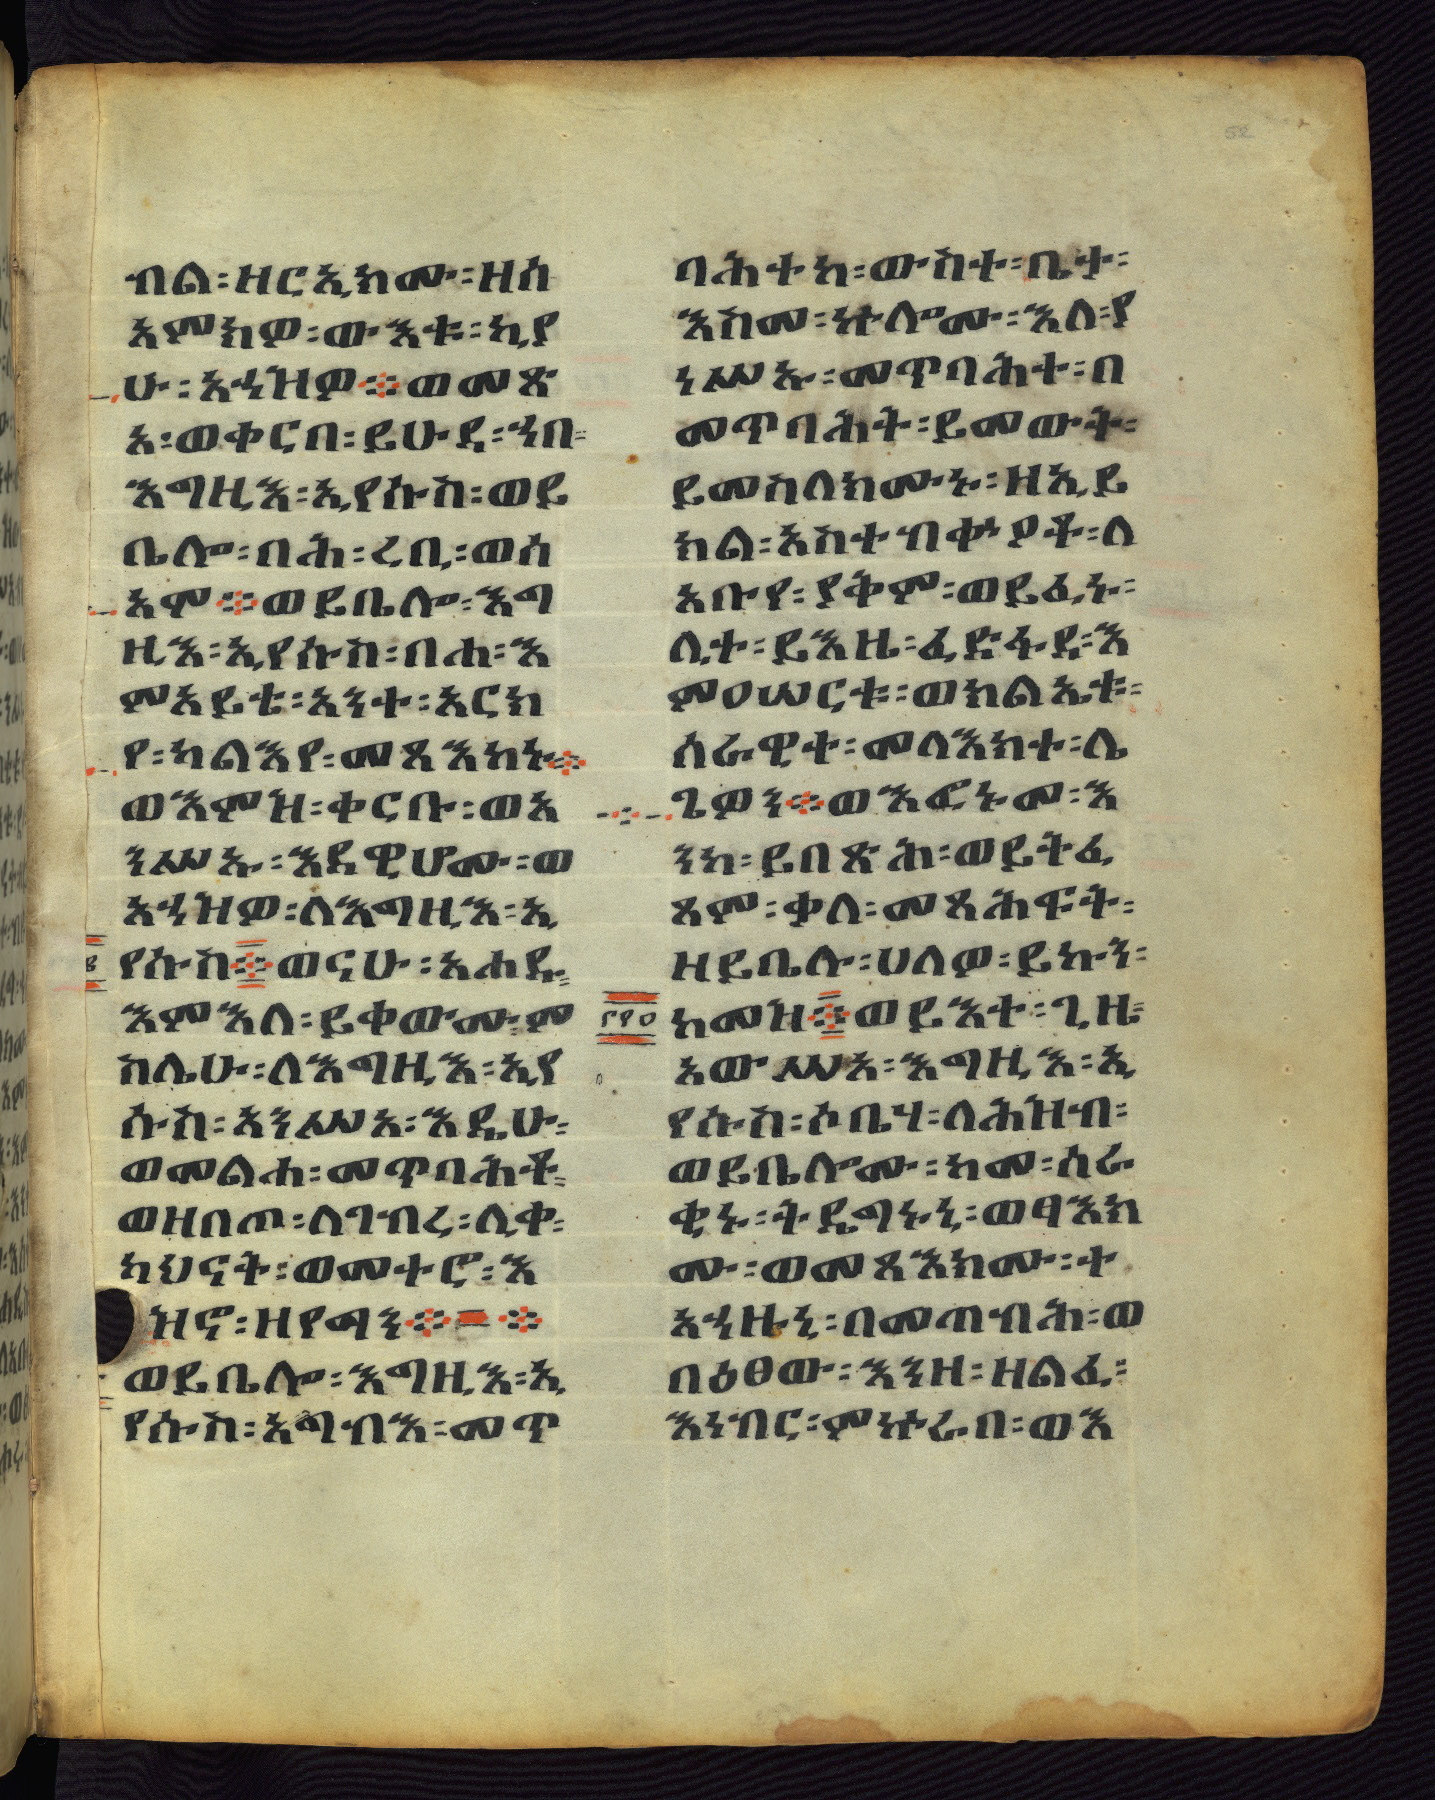 ብል፡ዘርኢክሙ፡ዘሰ
አምክዎ፡ውእቱ፡ኪያ
ሁ፡አኀዝዎ፨ወመጽ
አ፡ወቀርበ፡ይሁዳ፡ኀበ፡
እግዚእ፡ኢየሱስ፡ወይ
ቤሎ፡በሕ፡ረቢ፡ወሰ
አሞ፨ወይቤሎ፡እግ
ዚእ፡ኢየሱስ፡በሐ፡እ
ምአይቴ፡አንተ፡አርክ
የ፡ካልእየ፡መጻእከኑ፨
ወእምዝ፡ቀርቡ፡ወአ
ንሥኡ፡እደዊሆሙ፡ወ
አኀዝዎ፡ለእግዚእ፡ኢ
የሱስ፨ወናሁ፡አሐዱ፡
እምእለ፡ይቀውሙ፡ም
ስሌሁ፡ለእግዚእ፡ኢየ
ሱስ፡አንሥአ፡እዴሁ፡
ወመልሐ፡መጥባሕቶ፡
ወዘበጦ፡ለገብረ፡ሊቀ፡
ካህናት፡ወመተሮ፡እ
ዝኖ፡ዘየማን፨፨
ወይቤሎ፡እግዚእ፡ኢ
የሱስ፡አግብእ፡መጥ
ባሕተከ፡ውስተ፡ቤታ፡
እስመ፡ኵሎሙ፡እለ፡የ
ነሥኡ፡መጥባሕተ፡በ
መጥባሕት፡ይመውት፡
ይመስለክሙኑ፡ዘኢይ
ክል፡አስተብቍዖቶ፡ለ
አቡየ፡ያቅም፡ወይፈኑ፡
ሊተ፡ይእዜ፡ፈድፋደ፡እ
ምዐሠርቱ፡ወክልኤቱ፡
ሰራዊተ፡መላእክተ፡ሌ
ጌዎን፨ወእፎኑመ፡እ
ንከ፡ይበጽሕ፡ወይትፌ
ጸም፡ቃለ፡መጻሕፍት፡
ዘይቤሉ፡ሀለዎ፡ይኩን፡
፻፶፬
ከመዝ፨ወይእተ፡ጊዜ፡
አውሥአ፡እግዚእ፡ኢ
የሱስ፡ኦቤሃ፡ለሕዝብ፡
ወይቤሎሙ፡ከመ፡ሰራ
ቂኑ፡ትዴግኑኒ፡ወፃእክ
ሙ፡ወመጻእክሙ፡ተ
አኀዙኒ፡በመጣብሕ፡ወ
በዕፀው፡እንዘ፡ዘልፈ፡
እነብር፡ምኵራበ፡ወእ